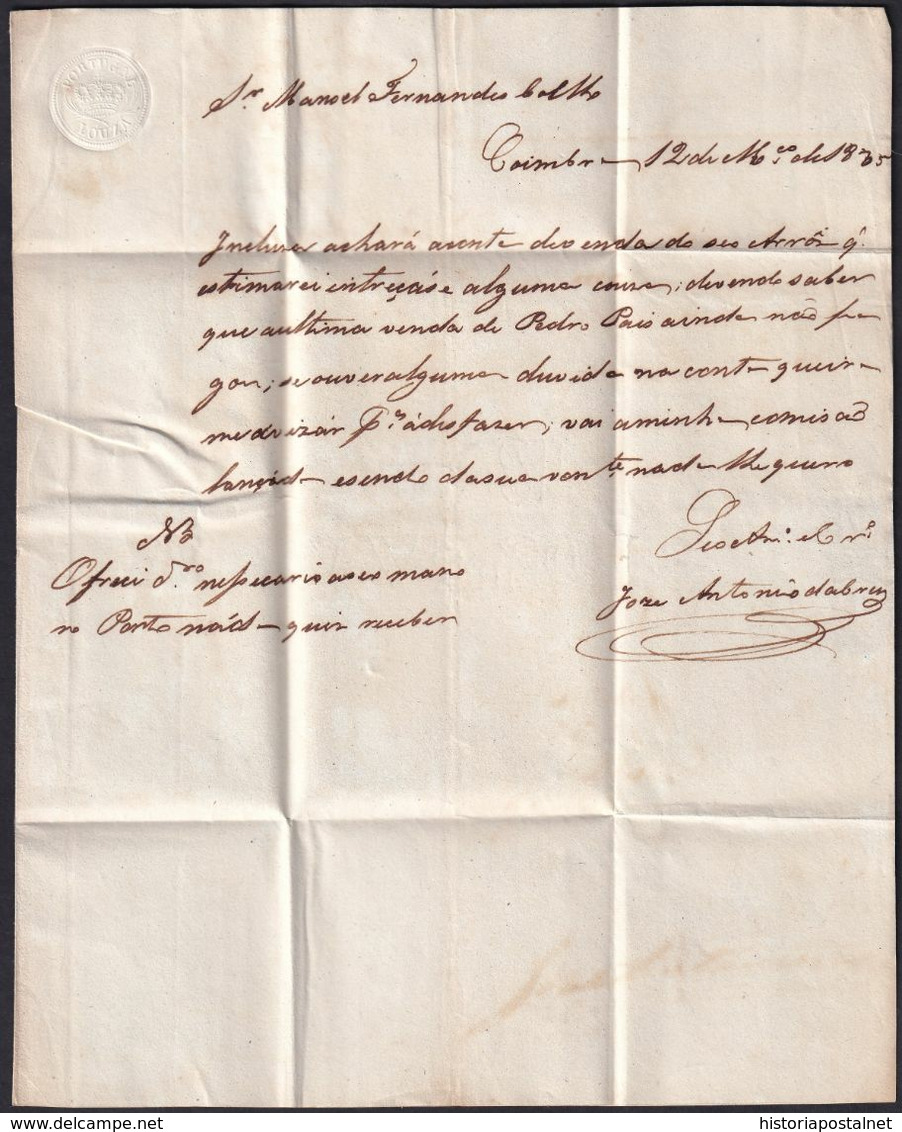 PORTUGAL
LOUZÃ
Sr. Manoel Fernandes Coelho
Coimbra 12 de Mço. de 1835
Incluza achará aconta de venda do seo Arrôz q.
estimarei intreçáse alguma couza, devendo saber
que aultima venda de Pedro Pais ainda não pa
gou, se ouver alguma duvida na conta queira
me avizár pa. ádisfazer, vai aminha comisão
lançád esendo dasua vonte. nada lhe quero
Seo Am.o e Cr.o
Joze Antonio dabreu
NB
Ofreci dro. nessecario aoseo mano
no Porto nád quis receber
historiapostalnet
www.delcampe.net